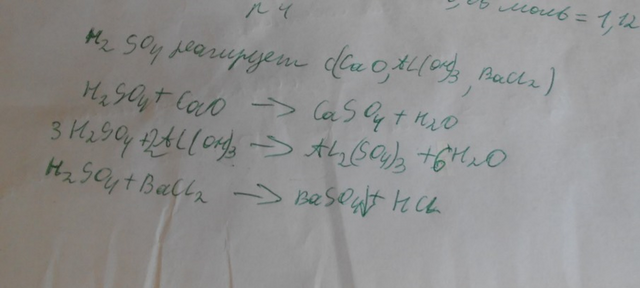 N 4 моль = 1,12
H₂SO₄ реагирует c(CaO, Al(OH)₃, BaCl₂)
H₂SO₄ + CaO → CaSO₄ + H₂O
3H₂SO₄ + 2Al(OH)₃ → Al₂(SO₄)₃ + 6H₂O
H₂SO₄ + BaCl₂ → BaSO₄↓ + HCl